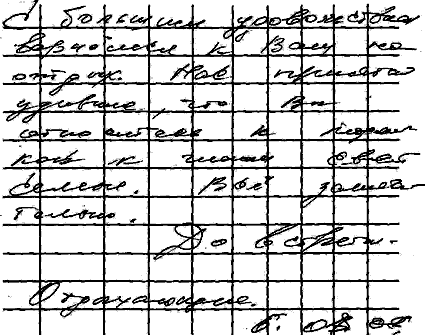 С большим удовольствием
вернёмся к Вам на
отдых. Нас приятно
удивило, что Вы
относитесь к нам
как к членам своей
семьи. Всё замеча
тельно.
До встречи.
Отдыхающие.
6. 08 08.